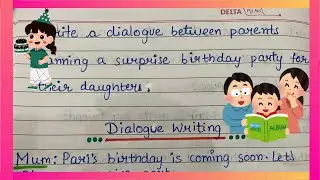 DELTA
a dialogue between parents
a surprise birthday party for
their daughters.
Dialogue Writing
Mum: Pari's birthday is coming soon. Let's